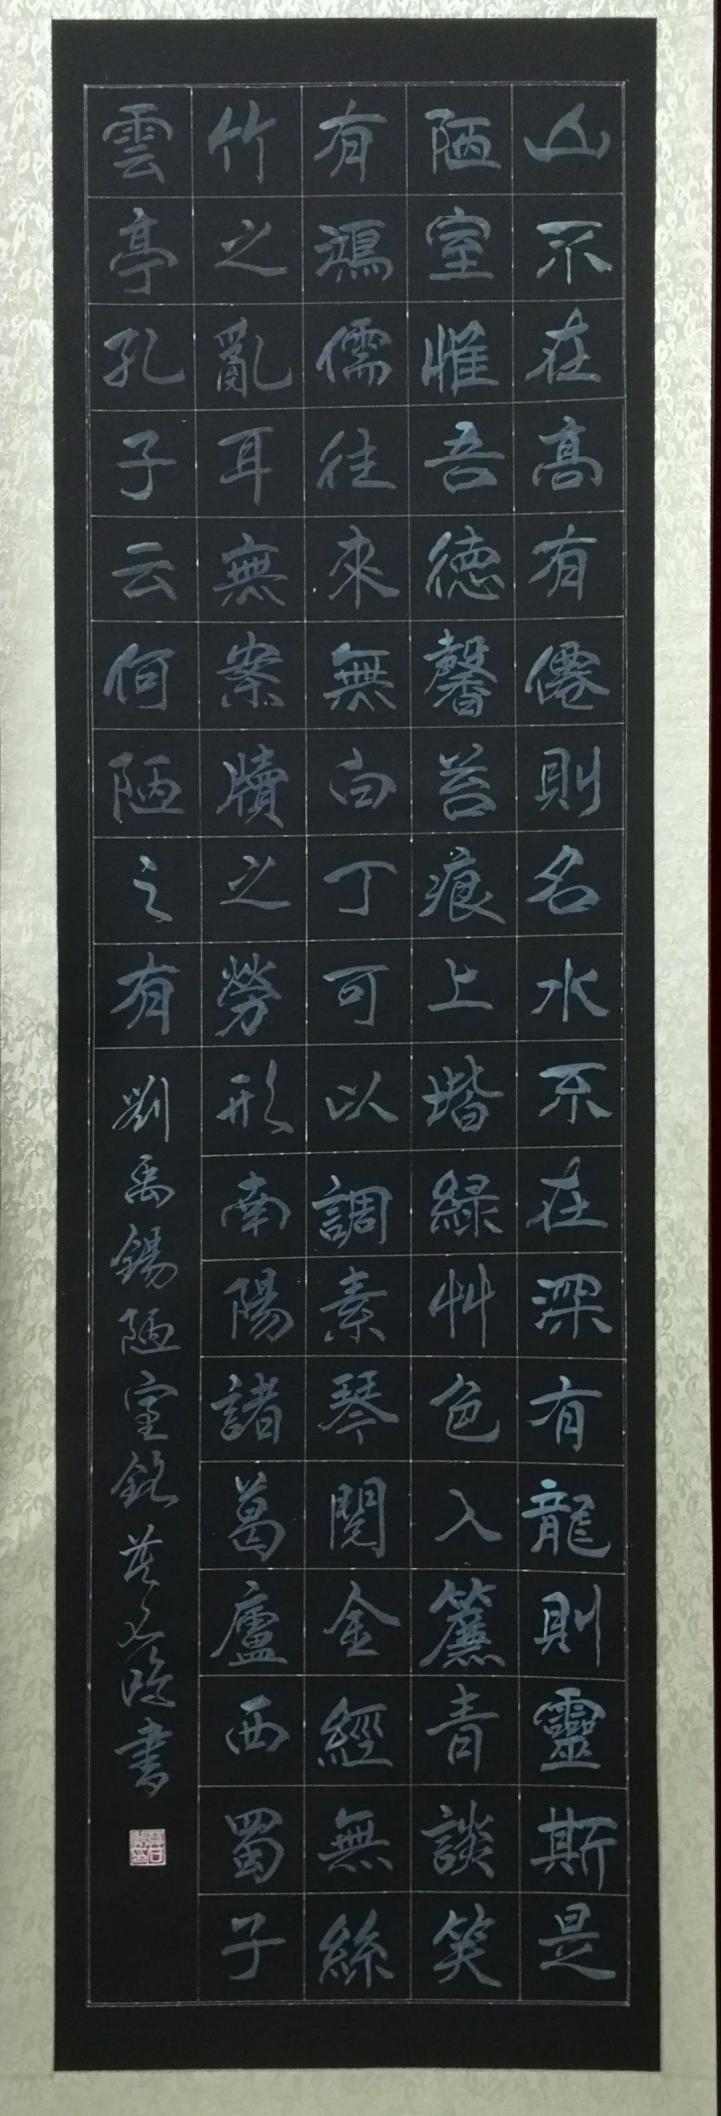 山不在高有僊則名水不在深有龍則靈斯是
陋室惟吾德馨苔痕上堦綠艸色入簾青談笑
有鴻儒往來無白丁可以調素琴閱金經無絲
竹之亂耳無案牘之勞形南陽諸葛廬西蜀子
雲亭孔子云何陋之有
劉禹錫陋室銘書